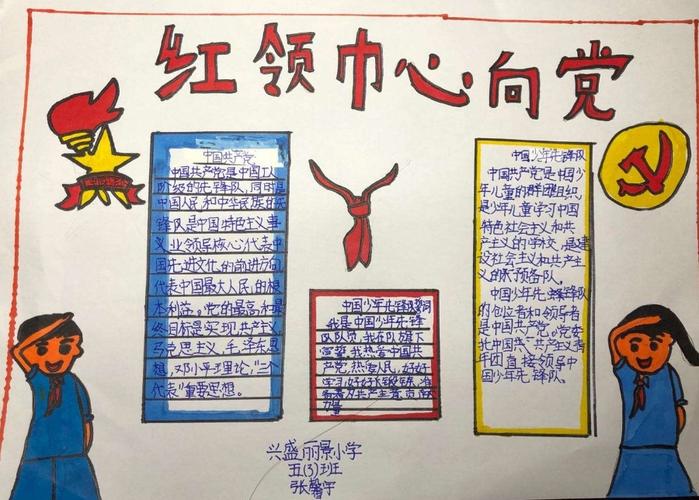 红领巾心向党
中国共产党
中国共产党是中国工人
阶级的先锋队,同时是
中国人民和中华民族的先
锋队是中国特色主义事
义业领导核心代表中
国先进文化的前进方向
代表中国最大人民的根
本利益。党的最高和最
终目标是实现共产主义
马克思主义,毛泽东思
想,邓小平理论,“三个
代表”重要思想。
中国少年先锋队誓词
我是中国少年先锋
队队员,我在队旗下
宣誓,我热爱中国共
产党,热爱人民,好好
学习好好锻炼,准
备着为共产主义贡献
力量
中国少年先锋队
中国共产党是中国少
年儿童的群团组织
是少年儿童学习中国
特色社会主义和共
产主义的学校,是建
设社会主义和共产主
义的预备队。
中国少年先锋队
的创立者和领导者
是中国共产党。党委
托中国共产主义青
年团直接领导中
国少年先锋队。
兴盛丽景小学
五(3)班
张馨宇